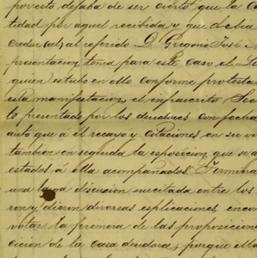 por esto dejaba de ser cierto que la can
tidad por aquel recibida y que debia
al referido D. Gregorio Jose
presentacion tenia para este caso el
quien estubo en ello conforme protesta
esta manifestacion el infrascrito Sec
to presentado por los deudores con fecha
auto que á el recayo y citaciones en su
tambien en seguida la esposicion que
estados á ella acompañados. Termina
una larga discusion suscitada entre los
ron y dieron diversas esplicaciones
votar la primera de las proposicion
cicion de la casa deudora, porque